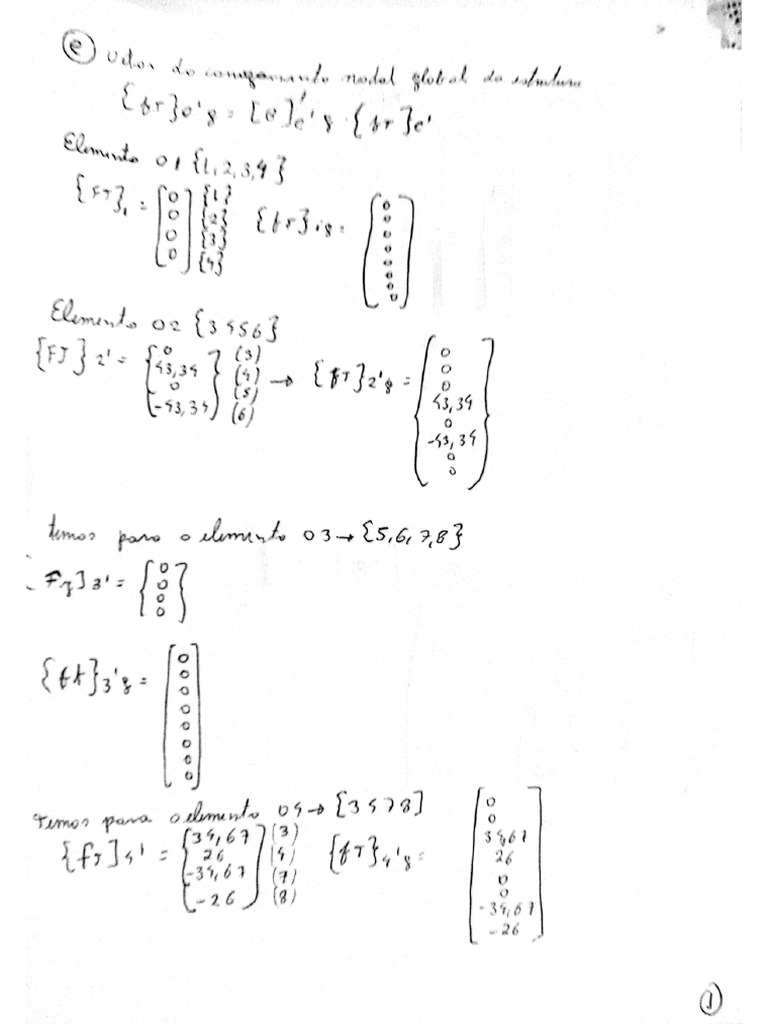 (e) vetor do carregamento nodal global da estrutura
{fT}e'g = [B]'e'g · {fT}e'
Elemento 01 {1,2,3,4}
{FT}1 = [0 0 0 0] {1} {2} {3} {4} {fT}1g = [0 0 0 0 0 0 0 0]
Elemento 02 {3 4 5 6}
{FT}2' = {0 43,34 0 -43,34} (3) (4) (5) (6) → {fT}2'g = {0 0 0 43,34 0 -43,34 0 0}
temos para o elemento 03 → {5,6,7,8}
FT}3' = {0 0 0 0}
{ft}3'g = [0 0 0 0 0 0 0 0]
Temos para o elemento 04 → [3 4 7 8]
{fT}4' = {34,67 26 -34,67 -26} (3) (4) (7) (8) {fT}4'g = [0 0 34,67 26 0 0 -34,67 -26]
(1)